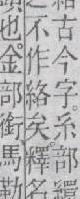 古今字糸部
之不作絡矣釋名
也金部銜馬勒